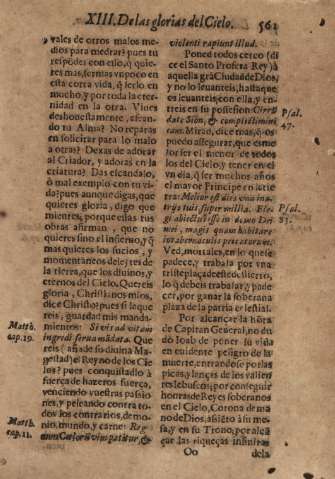 XIII. De las glorias del Cielo. 561
y vales de otros malos me-
dios para medrar? pues tu
respondes con esso, q̃ quie-
res mas, ser mas vn poco en
esta corta vida, q̃ serlo en
mucho, y por toda la eter-
nidad en la otra. Vives
deshonestamente, afean-
do tu Alma? No reparas
en solicitar para lo malo
a otra? Dexas de adorar
al Criador, y adoras en la
criatura? Das escandalo,
ò mal exemplo con tu vi-
da? pues aunque digas, que
quieres gloria, digo que
mientes, porque essas tus
obras afirman, que no
quieres sino el infierno, y q̃
mas quieres los sucios, y
momentaneos deleytes de
la tierra, que los divinos, y
eternos del Cielo. Quereis
gloria, Christianos mios,
dice Christo? pues si la que-
reis, guardad mis manda-
mientos: Si vis ad vitam
ingredi serva mãdata. Que
reis (añade su divina Ma-
gestad) el Reyno de los Cie-
los? pues conquistadlo à
fuerça de hazeros fuerça,
venciendo vuestras passio-
nes, y peleando contra to-
dos los contrarios, demo-
nio, mundo, y carne: Reg-
num Cœlorũ vim patitur, &
Matth.
cap. 19.
Matth.
cap. 11.
violenti rapiunt illud.
Poned todos cerco (di
ce el Santo Profeta Rey) à
aquella grã Ciudad de Dios,
y no lo levanteis, hasta que
os levanteis con ella, y en-
treis en su possession: Circũ
date Sion, & complectimini
eam. Mirad, dice mas, q̃ os
puedo assegurar, que es me-
jor ser el menor de todos
los del Cielo, y tener en él
vn dia, q̃ ser muchos años
el mayor Principe en la tie-
rra: Melior est dies vna in a-
trijs tuis super millia. Ele-
gi abiectus esse in domo Dei
mei, magis quam habitare
in tabernaculis peccatorum.
Ved, mortales, en lo que se
padece, y trabaja por vna
triste plaça de este destierro,
lo q̃ debeis trabajar, y pade
cer, por ganar la soberana
plaza de la patria celestial.
Por alcançar la honra
de Capitan General, no du
dò Ioab de poner su vida
en evidente peligro de la
muerte, entrandose por las
picas, y lanças de los valien
tes Iebuseos; por conseguir
honras de Reyes soberanos
en el Cielo, Corona de ma
no de Dios, assiẽto à su me-
sa, y en su Trono, por alcã
çar las riqueças infinitas
Psal.
47.
Psal.
83.
Oo
de la